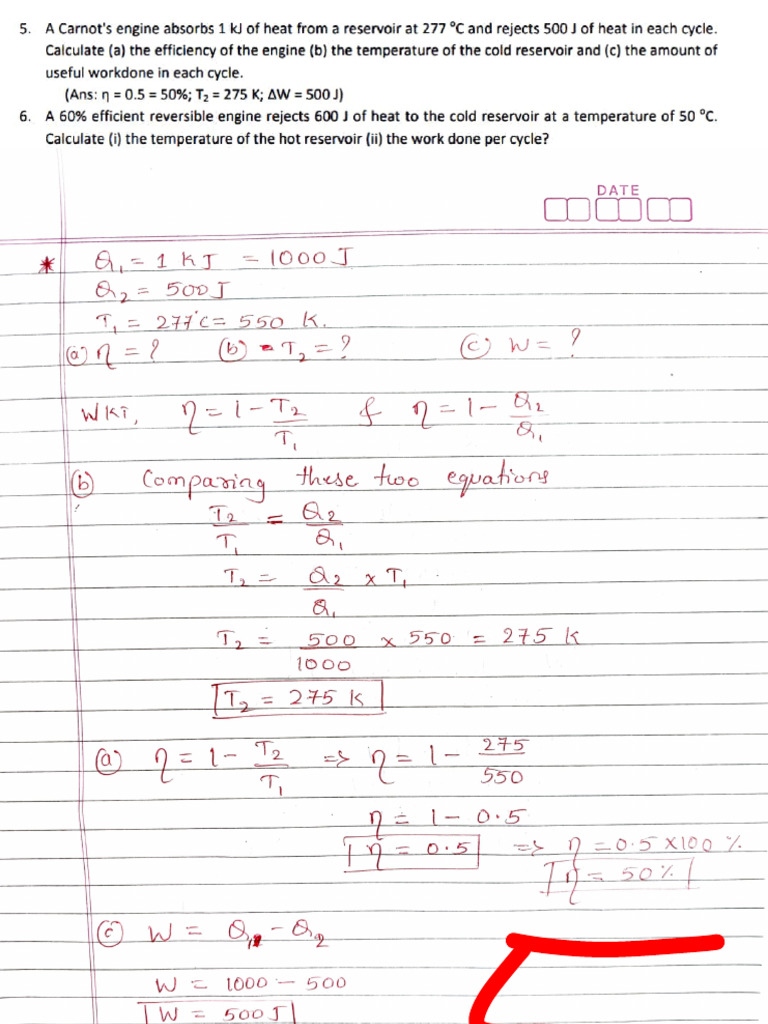 5. A Carnot's engine absorbs 1 kJ of heat from a reservoir at 277 °C and rejects 500 J of heat in each cycle.
Calculate (a) the efficiency of the engine (b) the temperature of the cold reservoir and (c) the amount of
useful workdone in each cycle.
(Ans: η = 0.5 = 50%; T₂ = 275 K; ΔW = 500 J)
6. A 60% efficient reversible engine rejects 600 J of heat to the cold reservoir at a temperature of 50 °C.
Calculate (i) the temperature of the hot reservoir (ii) the work done per cycle?
DATE
* Q₁ = 1 KJ = 1000 J
Q₂ = 500J
T₁ = 277°C = 550 K.
(a) η = ? (b) T₂ = ? (c) W = ?
WKT, η = 1 - T₂/T₁ & η = 1 - Q₂/Q₁
(b) Comparing these two equations
T₂/T₁ = Q₂/Q₁
T₂ = Q₂/Q₁ x T₁
T₂ = 500/1000 x 550 = 275 K
T₂ = 275 K
(a) η = 1 - T₂/T₁ => η = 1 - 275/550
η = 1 - 0.5
η = 0.5 => η = 0.5 X100 %
η = 50%
(c) W = Q₁ - Q₂
W = 1000 - 500
W = 500J